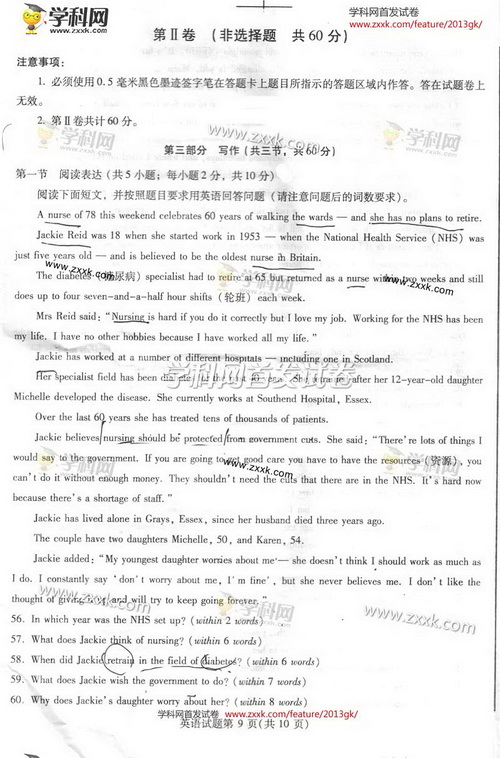 学科网
www.zxxk.com
学科网首发试卷
www.zxxk.com/feature/2013gk/
第Ⅱ卷 (非选择题 共60分)
注意事项:
1. 必须使用0.5毫米黑色墨迹签字笔在答题卡上题目所指示的答题区域内作答。答在试题卷上
无效。
2. 第Ⅱ卷共计60分。
学科网
www.zxxk.com
第三部分 写作(共三节,共60分)
第一节 阅读表达(共5小题;每小题2分,共10分)
阅读下面短文,并按照题目要求用英语回答问题(请注意问题后的词数要求)。
A nurse of 78 this weekend celebrates 60 years of walking the wards — and she has no plans to retire.
Jackie Reid was 18 when she started work in 1953 — when the National Health Service (NHS) was
just five years old — and is believed to be the oldest nurse in Britain.
www.zxxk.com
学科网
www.zxxk.com
The diabetes (糖尿病) specialist had to retire at 65 but returned as a nurse within two weeks and still
does up to four seven-and-a-half hour shifts (轮班) each week.
Mrs Reid said: "Nursing is hard if you do it correctly but I love my job. Working for the NHS has been
my life. I have no other hobbies because I have worked all my life."
Jackie has worked at a number of different hospitals — including one in Scotland.
学科网首发试卷
Her specialist field has been after her 12-year-old daughter
Michelle developed the disease. She currently works at Southend Hospital, Essex.
Over the last 60 years she has treated tens of thousands of patients.
Jackie believes nursing should be protected from government cuts. She said: "There're lots of things I
would say to the government. If you are going to get good care you have to have the resources (资源), you
can't do it without enough money. They shouldn't need the cuts that there are in the NHS. It's hard now
because there's a shortage of staff."
学科网
www.zxxk.com
学科网
Jackie has lived alone in Grays, Essex, since her husband died three years ago.
The couple have two daughters Michelle, 50, and Karen, 54.
Jackie added: "My youngest daughter worries about me — she doesn't think I should work as much as
I do. I constantly say 'don't worry about me, I'm fine', but she never believes me. I don't like the
thought of giving up and will try to keep going forever."
学科网
www.zxxk.com
56. In which year was the NHS set up? (within 2 words)
57. What does Jackie think of nursing? (within 6 words)
www.zxxk.com
58. When did Jackie retrain in the field of diabetes? (within 6 words)
59. What does Jackie wish the government to do? (within 7 words)
60. Why does Jackie's daughter worry about her? (within 8 words)
学科网首发试卷 www.zxxk.com/feature/2013gk/
英语试题第 9 页(共 10 页)